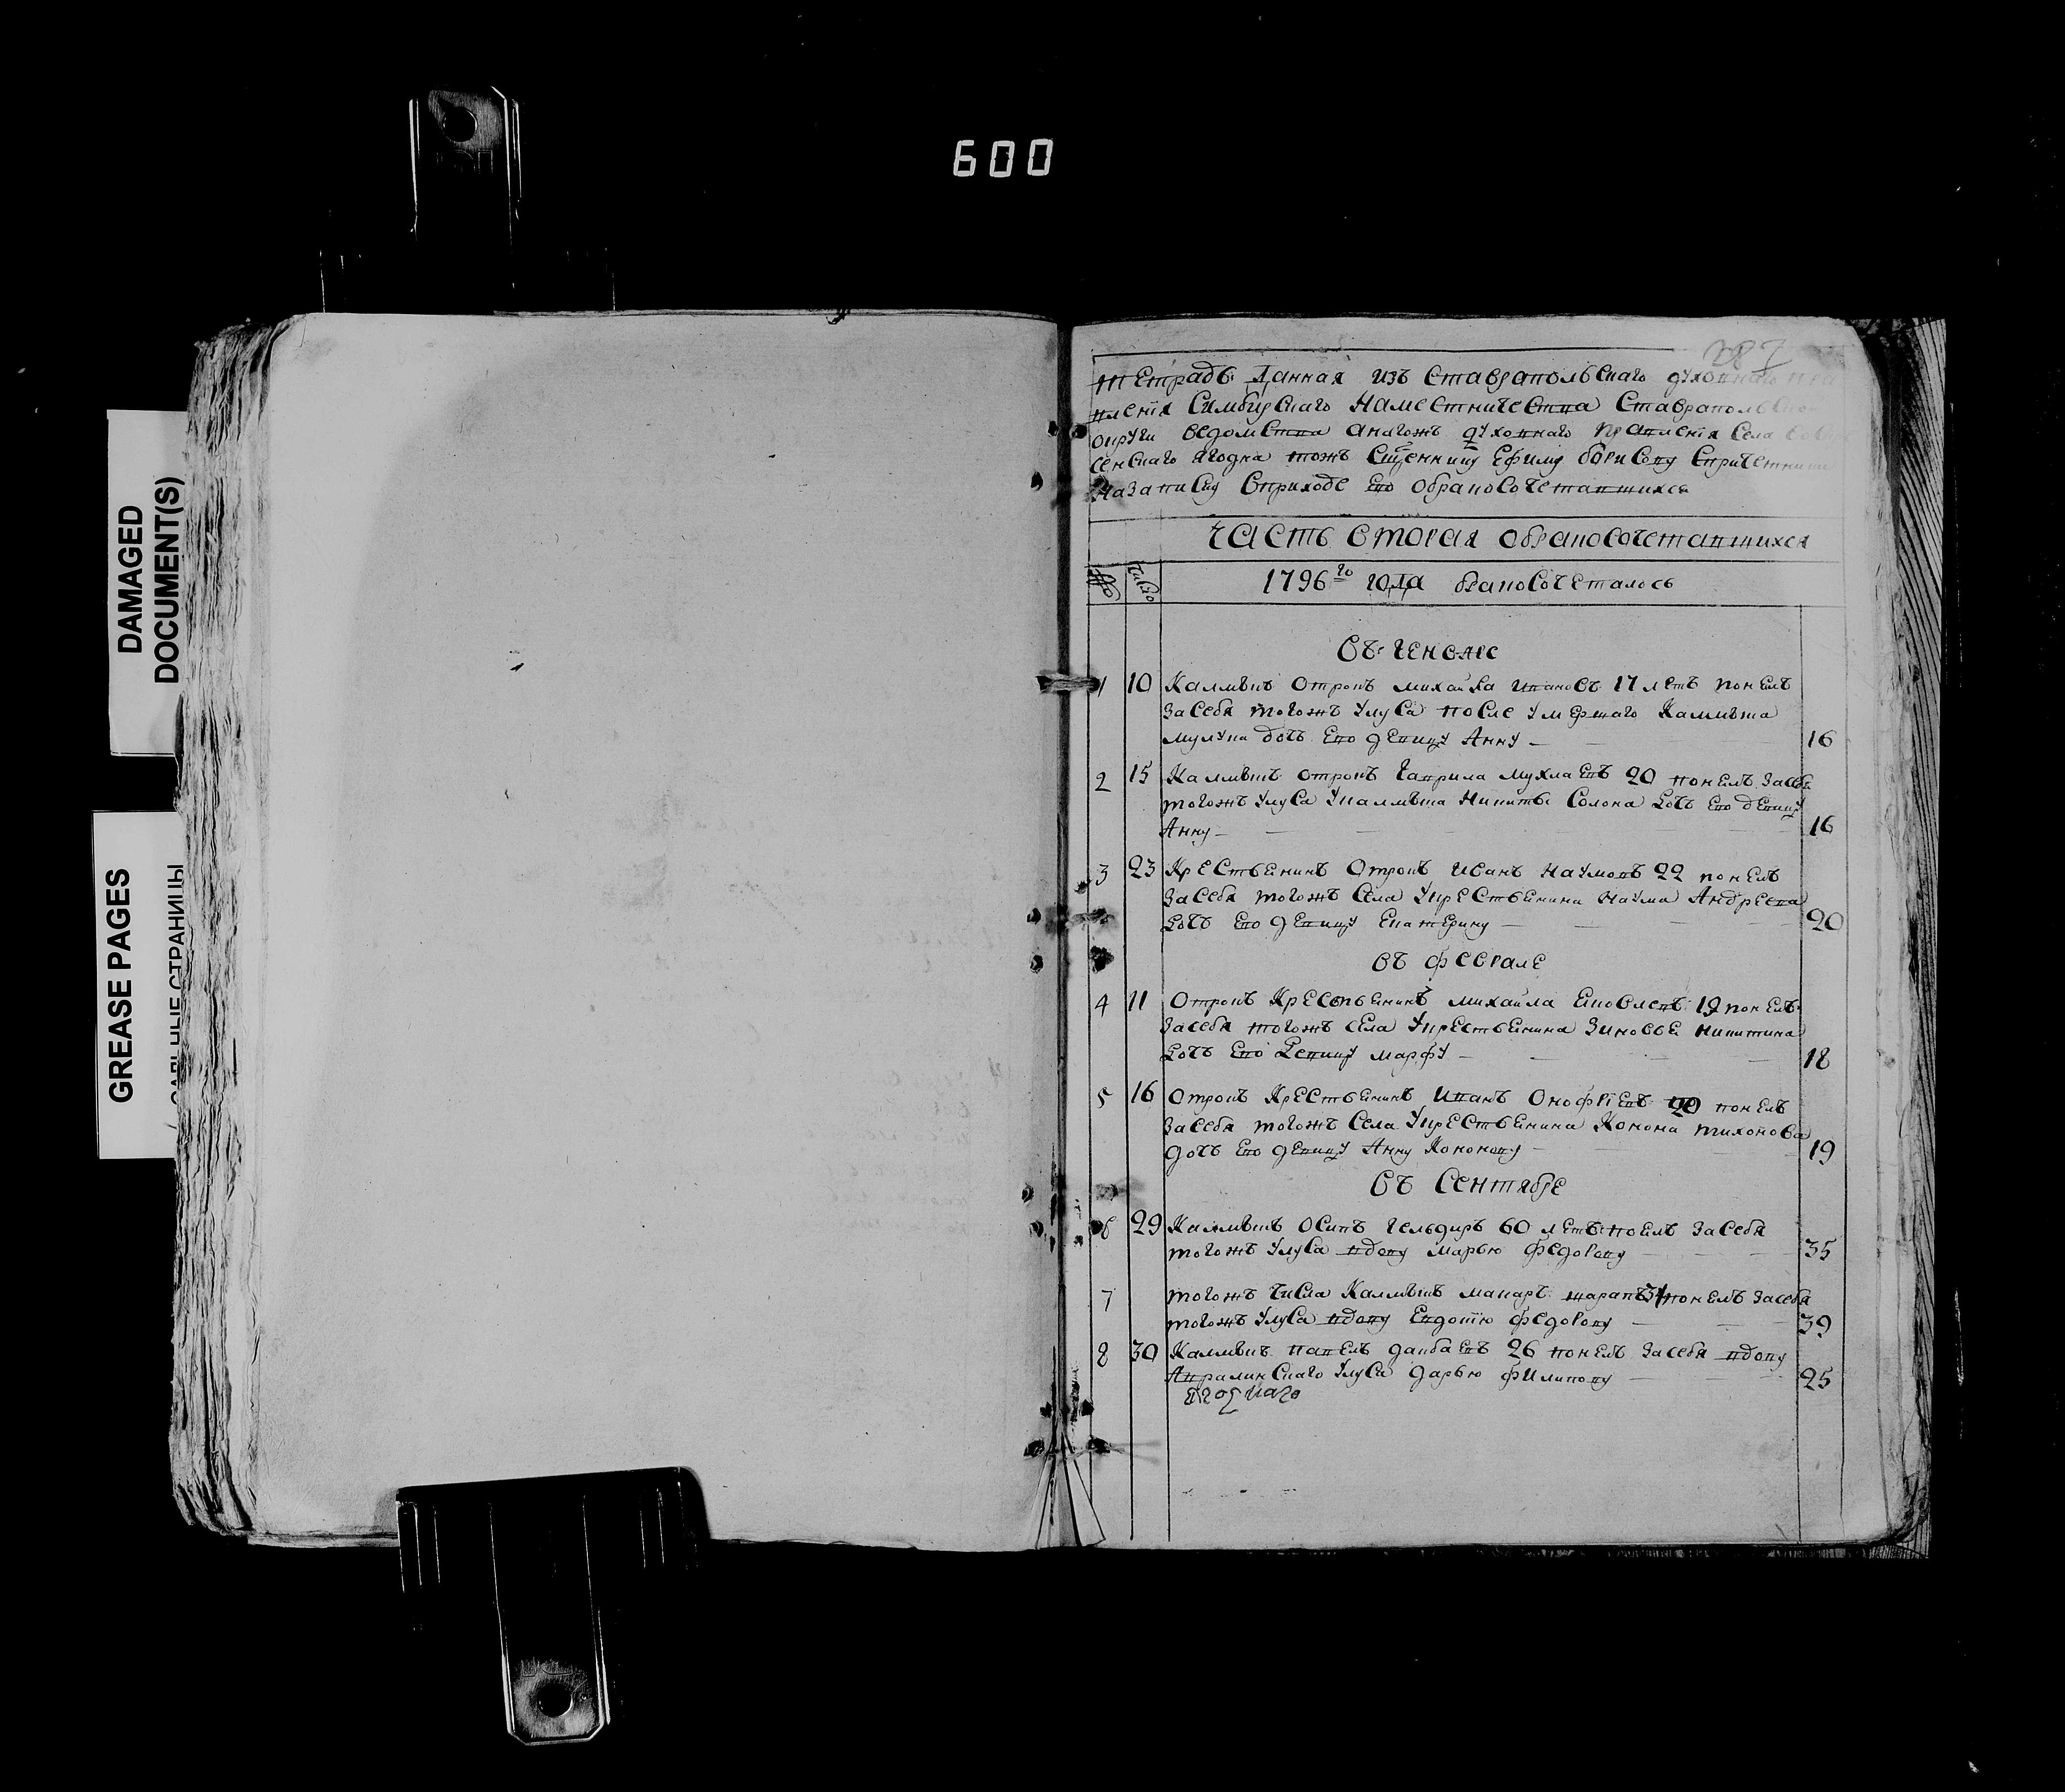 600
DAMAGED
DOCUMENT(S)
GREASE PAGES
САЛЬНЫЕ СТРАНИЦЫ
287
Тетрадь данная изъ Ставрапольскаго духовнаго
вления Симбирскаго Наместничества Ставрапольской
округи ведомства онагожъ духовнаго правления Села
сенскаго ягодна тожъ Сщеннику Ефиму борисову Спричетники
назаписку Вприходе ево обракосочетавшихся
Часть вторая обракосочетавшихся
число
1796го года бракосочеталось
въ генваре
1 10 Калмыкъ отрокъ михайла Ивановъ 17 летъ понелъ
засебя тогожъ улуса после умершаго Калмыка
дочь ево девицу Анну 16
2 15 Калмыкъ отрокъ Гаврила 20 понелъ засебя
тогожъ улуса укалмыка Никиты дочь ево девицу
Анну 16
3 23 Крестьенинъ отрокъ иванъ Наумовъ 22 понелъ
засебя тогожъ села укрестьенина наума Андреева
дочь ево девицу Екатерину 20
въ феврале
4 11 Отрокъ Крестьенинъ михайла Яковлевъ 19 понелъ
засебя тогожъ села укрестьенина Зиновье никитина
дочь ево девицу марфу 18
5 16 Отрокъ Крестьенинъ Иванъ Онофриевъ 20 понелъ
засебя тогожъ села укрестьенина Конона тихонова
дочь ево девицу Анну Кононову 19
въ Сентябре
6 29 Калмыкъ Осипъ 60 летъ поелъ засебя
тогожъ улуса вдову марью федорову 35
7 тогожъ числа Калмыкъ 34 понелъ засебя
тогожъ улуса вдову Евдотю федорову 39
8 30 Калмыкъ павелъ 26 понелъ засебя вдову
улуса дарью филипову 25